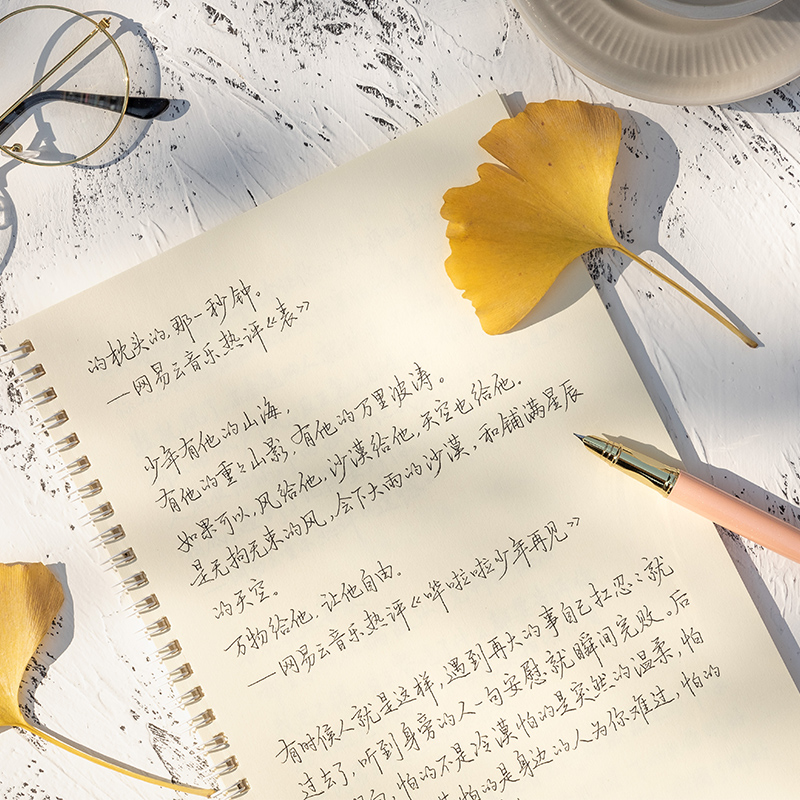 的枕头的,那一秒钟。
—网易云音乐热评《表》
少年有他的山海,
有他的重々山影,有他的万里波涛。
如果可以,风给他,沙漠给他,天空也给他。
是无拘无束的风,会下大雨的沙漠,和铺满星辰
的天空。
万物给他,让他自由。
—网易云音乐热评《哗啦啦少年再见》
有时候人就是这样,遇到再大的事自己扛忍々就
过去了,听到身旁的人一句安慰就瞬间完败。后
怕的不是冷漠怕的是突然的温柔,怕
怕的是身边的人为你难过,怕的